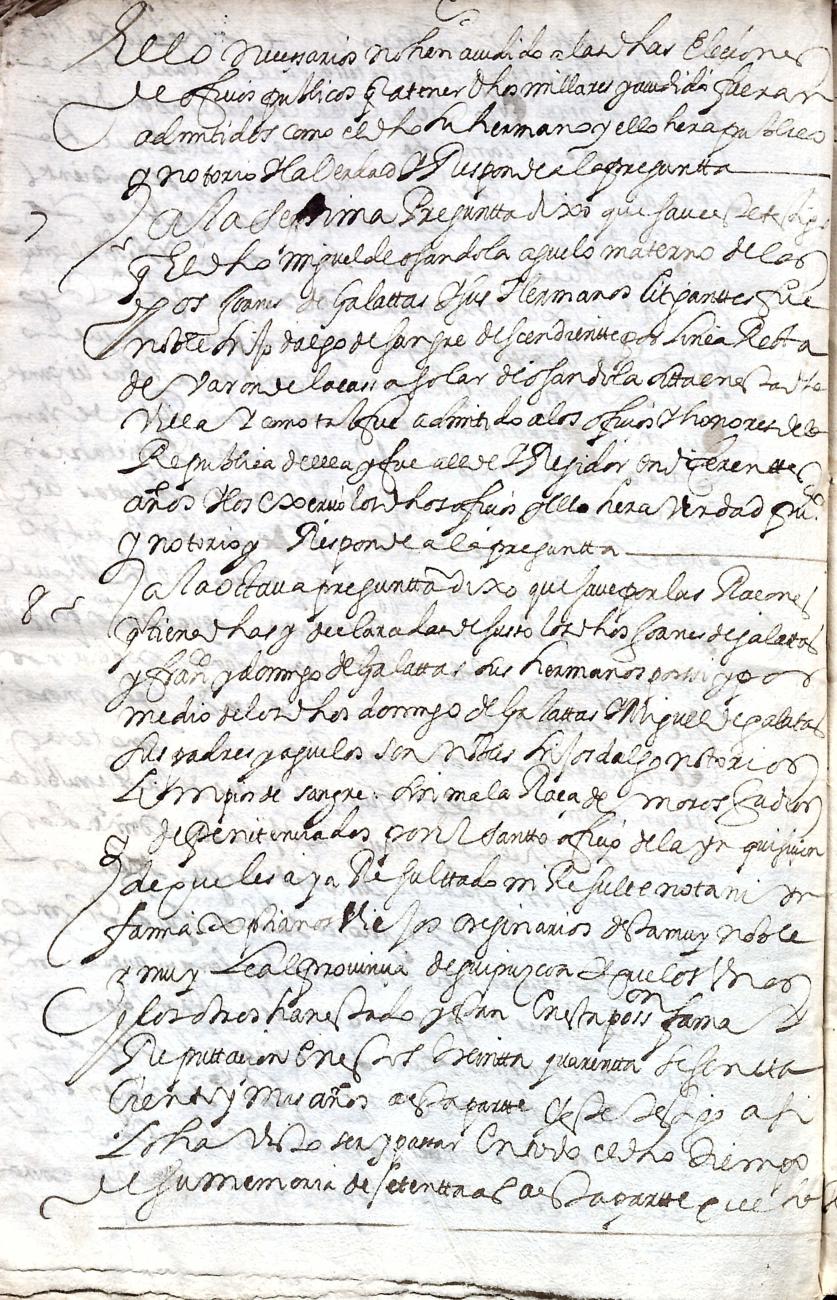 Ello necesarios no hen acudido a las dhas Eleciones
de oficios publicos q a tener dhos millares y acudido fueran
admitidos como el dho su hermano y ello hera publico
y notorio Y la Verdad Y Responde a la preguntta
7 Ja la septima Preguntta dixo que save este testigo
q El dho miguel de osandola aguelo materno de los
dhos Joanes de Galattas Y sus Hermanos litigantes fue
noble hijo dalgo de sangre descendientte por linea Retta
de Varon de la cassa solar de osandola sitta en esta dha
Villa Y como tal fue admitido a los oficios Y honores de la
Republica de ella y fue allde Y Regidor en diferenttes
años Y los exerció los dhos oficios y ello hera Verdad puco
y notorio y Responde a la preguntta
8 Ja la octava preguntta dixo que save por las Raçones
q tiene dhas y declaradas de suso los dhos Joanes de galattas
y Franco y domingo de Galattas sus hermanos por si y por
medio de los dhos domingo de Galattas Y Miguel de galattas
sus padres y aguelos son nobles hijos dalgo notorios
Limpios de sangre sin mala Raça de moros Judios
y de Penitenciados por el santto oficio de la ynquisicion
de que les aya Resulttado ni Resulte nota ni yn
famia xptianos Viejos oreginarios desta muy noble
y muy Leal provinçia de guipuzcoa Y que los Unos
y los otros han estado y estan en esta posson fama Y
Reputtacion en estos treintta quarentta sesentta
Cientt y mas años a esta partte y este testigo assi
Lo ha visto ser y passar en todo el dho tiempo
de su memoria de setentta as a esta partte que ha